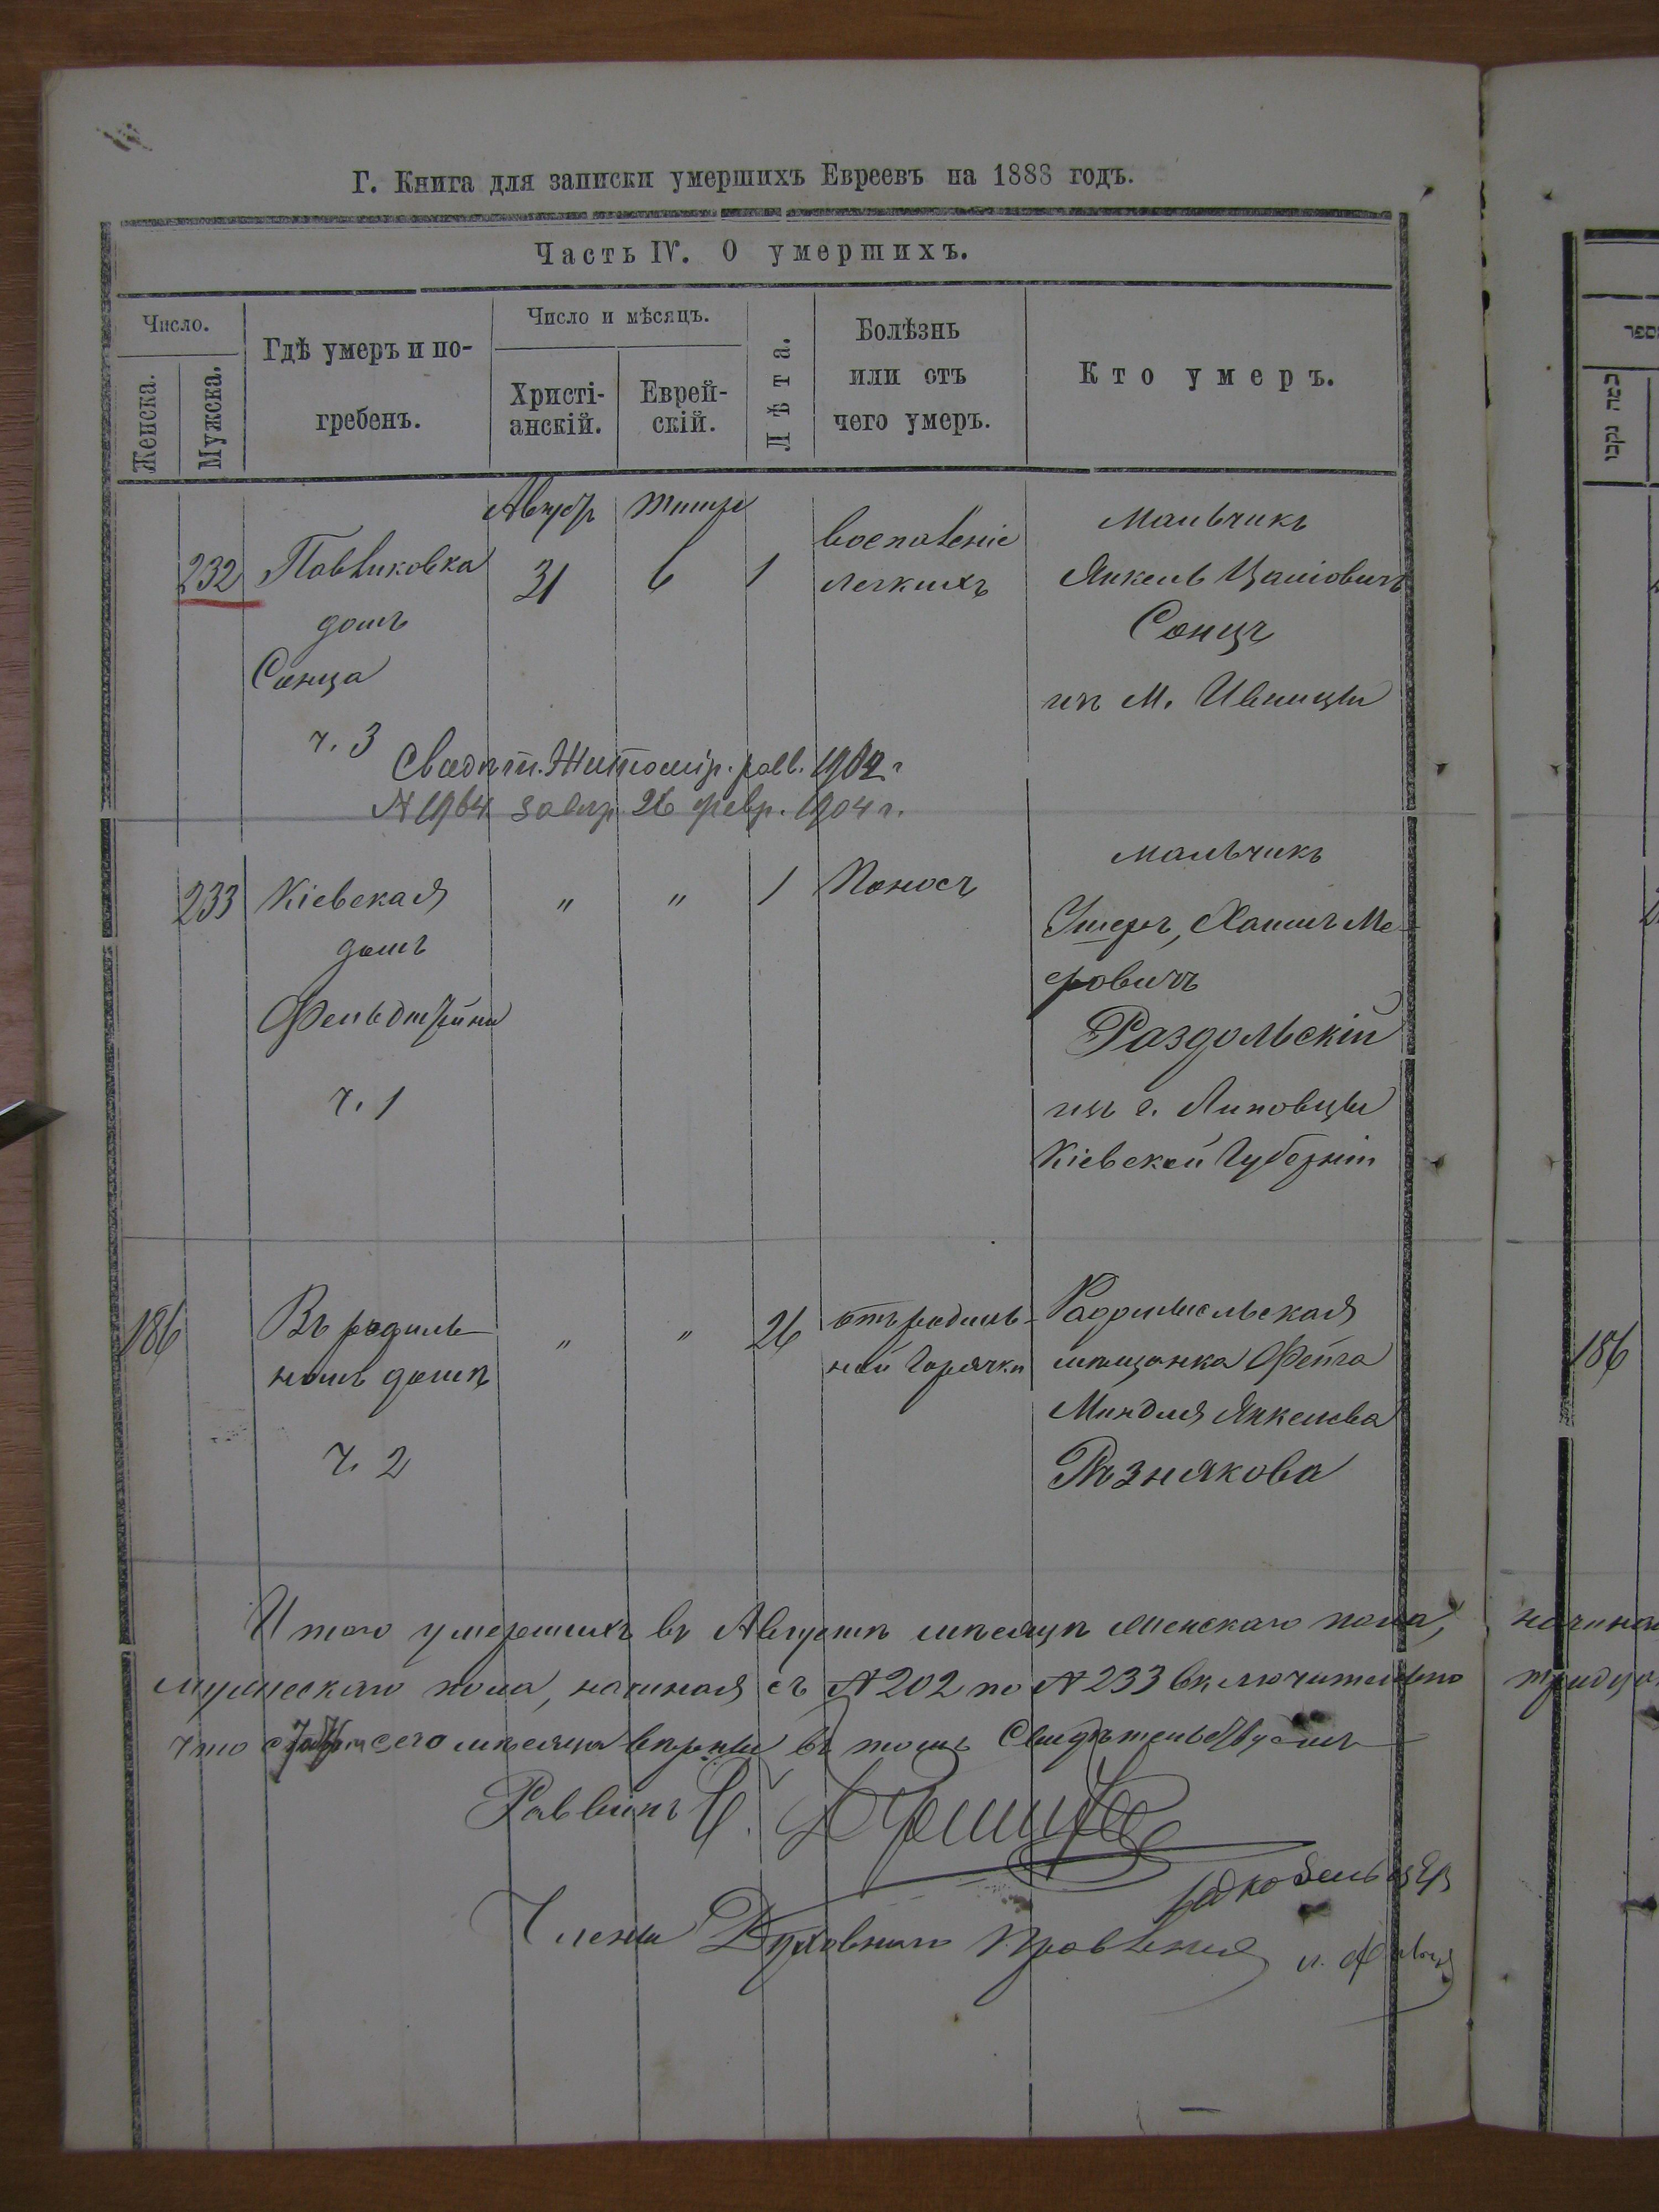 Г. Книга для записки умершихъ Евреевъ на 1888 годъ.
Часть IV. О умершихъ.
Число.
Женска.
Мужска.
Гдѣ умеръ и по-
гребенъ.
Число и мѣсяцъ.
Христі-
анскій.
Еврей-
скій.
Лѣта.
Болѣзнь
или отъ
чего умеръ.
Кто умеръ.
232
Павликовка
домъ
Сонца
ч. 3
31
6
1
воспаленіе
легкихъ
Мальчикъ
Янкель
Сонцъ
изъ М. Ивницы
Житомір. равв. 1902 г
N 1964 26 февр. 1904 г.
233
Кіевская
домъ
ч. 1
"
"
1
Поносъ
мальчикъ
Ушеръ, Хаимъ Ме-
еровичъ
Раздольскій
изъ г. Липовцы
Кіевской Губерніи
186
Въ родиль-
номъ домѣ
ч. 2
"
"
26
отъ родиль-
ной Горячки
Радомысльская
мѣщанка Фейга
Миндля Янкелева
Рѣзнякова
Итого умершихъ въ Августѣ мѣсяцѣ женскаго пола,
мужескаго пола, начиная съ N 202 по N 233 включительно
что сего мѣсяца въ томъ Свидѣтельствуемъ
Раввинъ
Члены Духовнаго Правленія
186